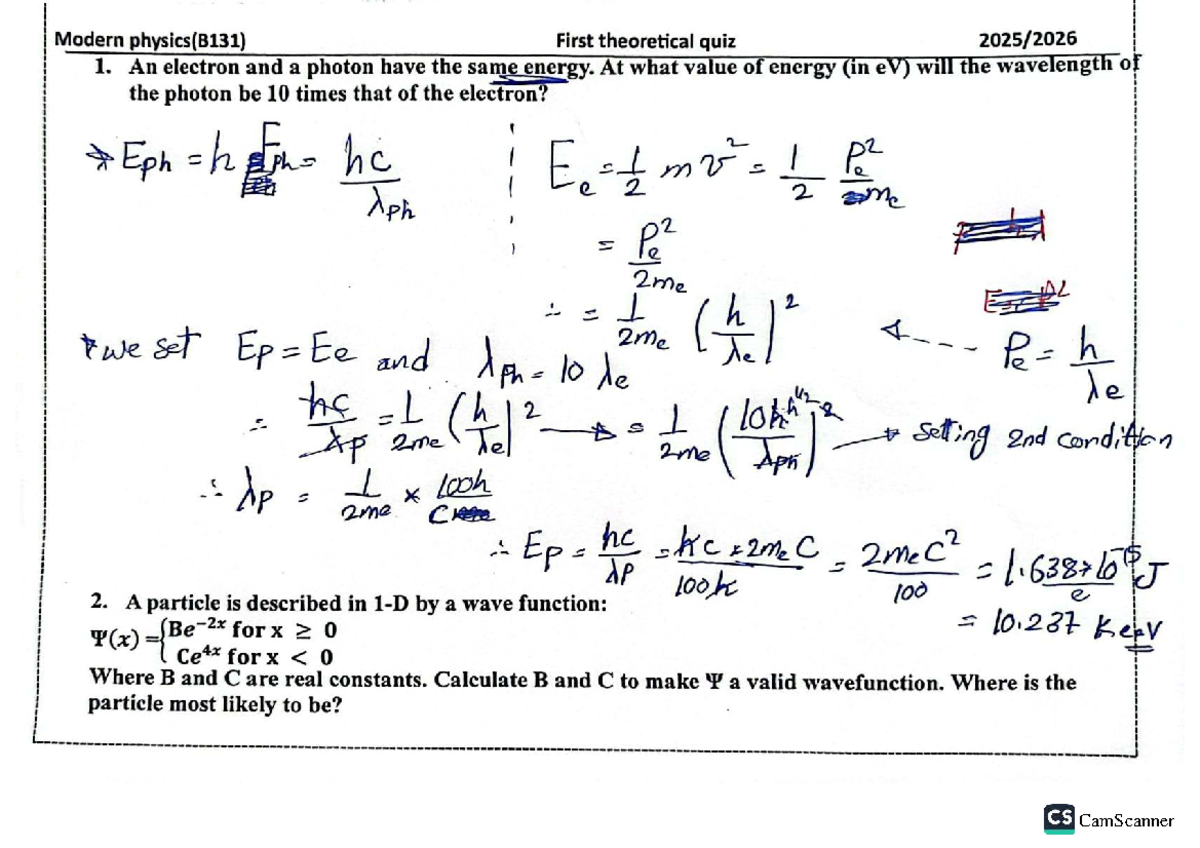 Modern physics(B131) First theoretical quiz 2025/2026
1. An electron and a photon have the same energy. At what value of energy (in eV) will the wavelength of
the photon be 10 times that of the electron?
Eph = h Eph = hc/λph
Ee = 1/2 mv² = 1/2 Pe²/me
= Pe²/2me
∴ = 1/2me (h/λe)² Pe = h/λe
* we set Ep = Ee and λph = 10 λe
∴ hc/λp = 1/2me (h/λe)² → = 1/2me (10h/λph)² → setting 2nd condition
∴ λp = 1/2me × 100h/C
∴ Ep = hc/λP = hc × 2meC/100h = 2meC²/100 = 1.638×10⁻¹⁵ J/e
= 10.237 KeeV
2. A particle is described in 1-D by a wave function:
Ψ(x) = {Be⁻²ˣ for x ≥ 0
Ce⁴ˣ for x < 0
Where B and C are real constants. Calculate B and C to make Ψ a valid wavefunction. Where is the
particle most likely to be?
CS CamScanner